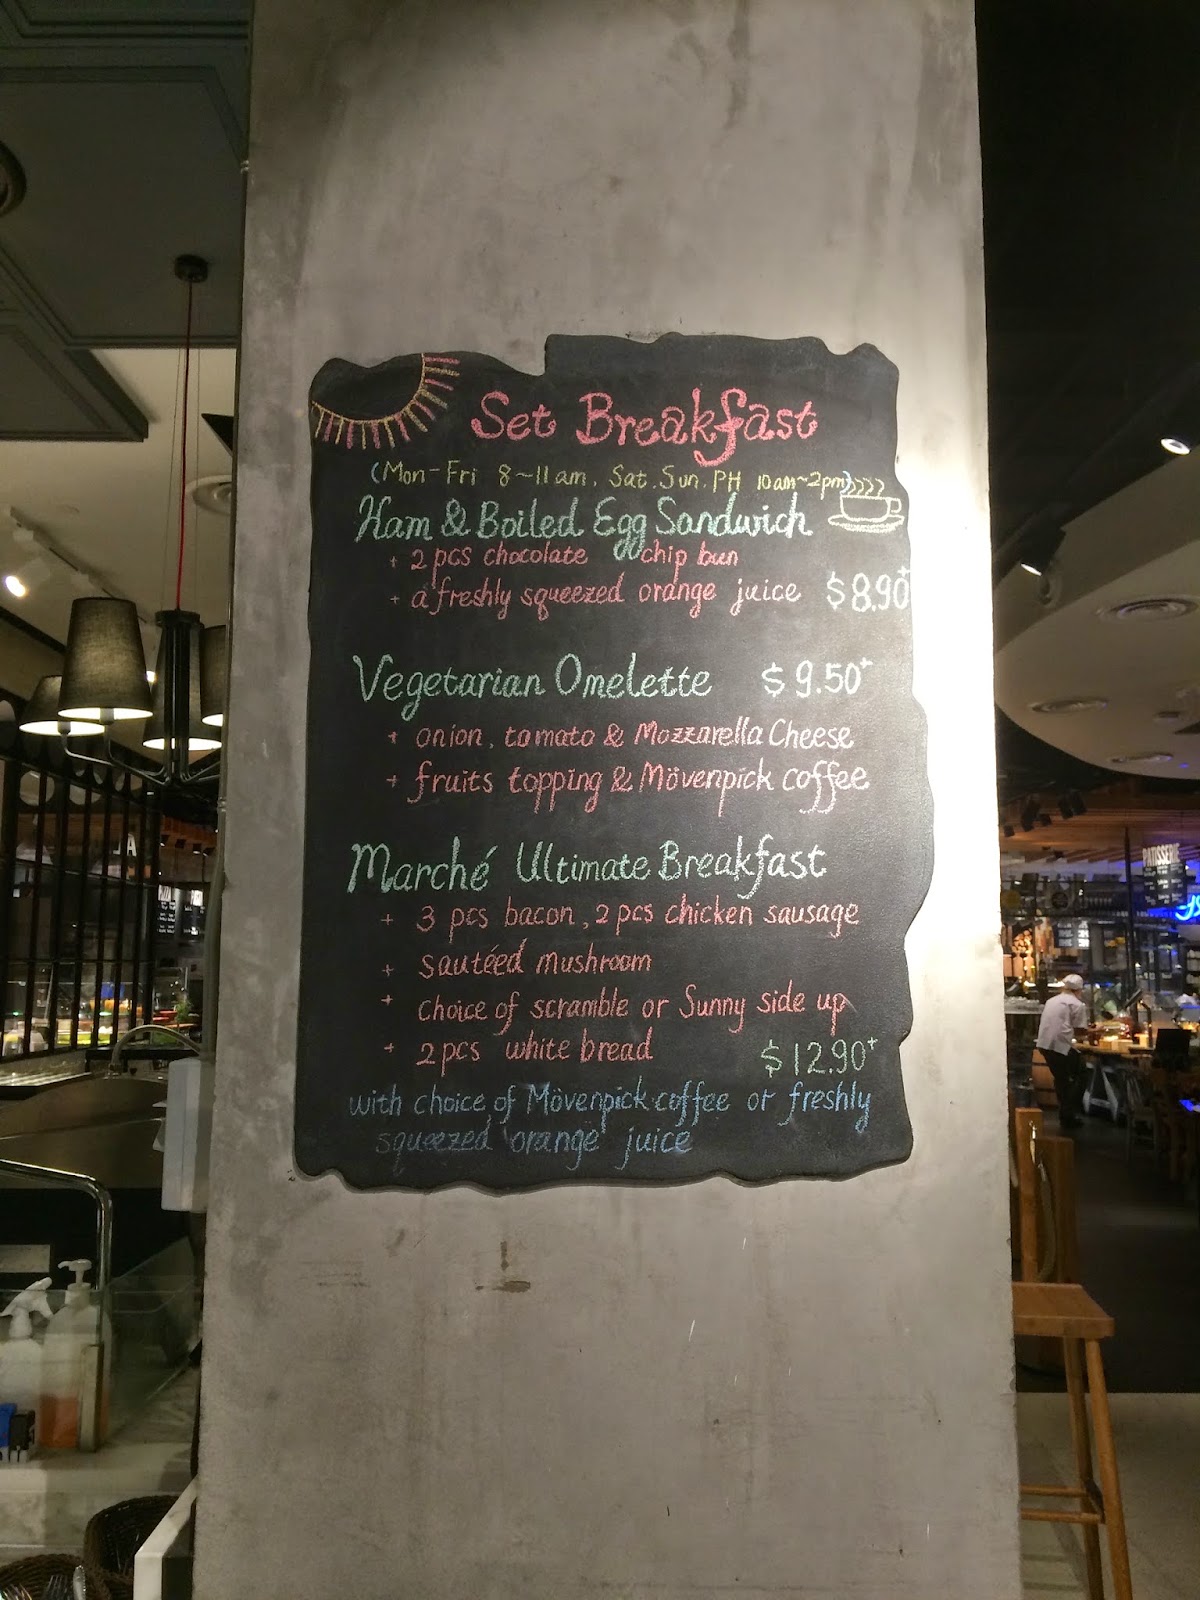 Set Breakfast
(Mon-Fri 8~11am, Sat.Sun.PH 10am~2pm)
Ham & Boiled Egg Sandwich
+ 2 pcs chocolate chip bun
+ a freshly squeezed orange juice $8.90+
Vegetarian Omelette $9.50+
+ onion, tomato & Mozzarella Cheese
+ fruits topping & Mövenpick coffee
Marché Ultimate Breakfast
+ 3 pcs bacon, 2 pcs chicken sausage
+ sautéed mushroom
+ choice of scramble or Sunny side up
+ 2pcs white bread $12.90+
with choice of Mövenpick coffee or freshly
squeezed orange juice
PATISSERIE